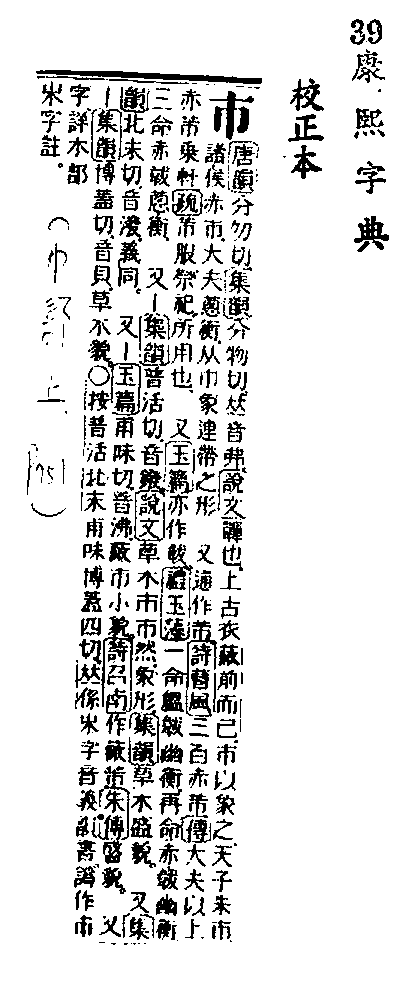 39 康熙字典
校正本
巿 唐韻分勿切集韻分物切𠀤音弗說文韠也上古衣蔽前而已巿以象之天子朱巿
諸侯赤巿大夫蔥衡从巾象連帶之形 又通作芾詩曹風三百赤芾傳大夫以上
赤芾乘軒疏芾服祭祀所用也 又玉篇亦作韍禮玉藻一命縕韍幽衡再命赤韍幽衡
三命赤韍蔥衡 又丨集韻普活切音鏺說文草木巿巿然象形集韻草木盛貌。又集
韻北末切音撥義同。又丨玉篇甫味切音沸蔽巿小貌詩召南作蔽芾朱傳盛貌。又
丨集韻博蓋切音貝草木貌。○按普活北末甫味博蓋四切𠀤係𣎵字音義書譌作巿
字詳木部
𣎵字註。
(巾 上